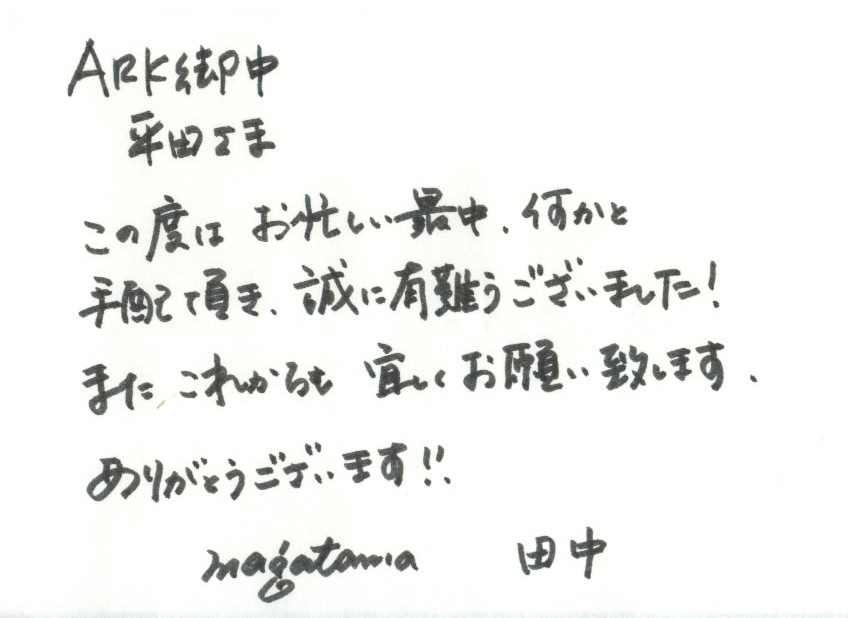 ARK御中
平田さま
この度は お忙しい最中、何かと
手配して頂き、誠に有難うございました！
また これからも 宜しくお願い致します、
ありがとうございます!!
magatama 田中